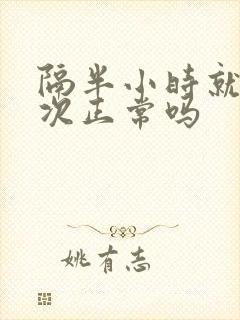 隔半小时就
次正常吗
姚有志